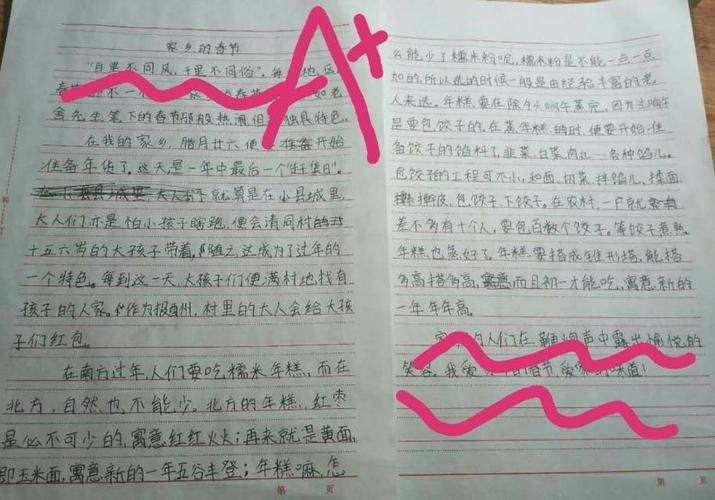 家乡的春节
"百里不同风,千里不同俗"。每地区
春节不一
舍先生笔下的春节那般热闹但独具特色。
在我的家乡,腊月廿六便准备开始
准备年货了。这天是一年中最后一个"赶集日"。
大人们就算是在小县城里,
大人们亦是怕小孩子瞎跑,便会请同村的
十五六岁的大孩子带着。随之,这成为了过年的
一个特色。每到这一天,大孩子们便满村地找有
孩子的人家。作为报酬州,村里的大人会给大孩
子们红包。
在南方过年,人们要吃糯米年糕,而在
北方,自然也不能少。北方的年糕,红枣
是必不可少的,寓意红红火火;再来就是黄面,
即玉米面,寓意新的一年五谷丰登;年糕嘛,怎
第 页
么能少了糯米粉呢,糯米粉是不能一点一点
加的,所以选的时候一般是由经验丰富的老
人来选。年糕要在除夕晌午蒸完。因为晌午
是要包饺子的。在蒸年糕的时,便要开始准
备饺子的馅料了,韭菜、白菜、肉丸……各种馅儿。
包饺子的工程可不小,和面、切菜、拌馅儿、揉面
擀皮、包饺子、下饺子。在农村,一户就
差不多有十个人,要包百数个饺子。等饺子煮熟,
年糕也蒸好了。年糕要搭成锥形塔,能搭
多高搭多高,寓意而且初一才能吃,寓意新的
一年年年高。
的人们在鞭炮声中露出愉悦的
笑容。我爱春节,爱的味道!
第 页
A+